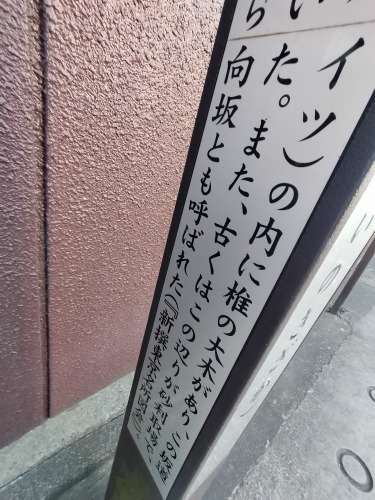 イツ）の内に椎の大木があり、この坂道
いた。また、古くはこの辺りが砂利取場で、
ら向坂とも呼ばれた（『新撰東京名所図会』）。
いのきざか